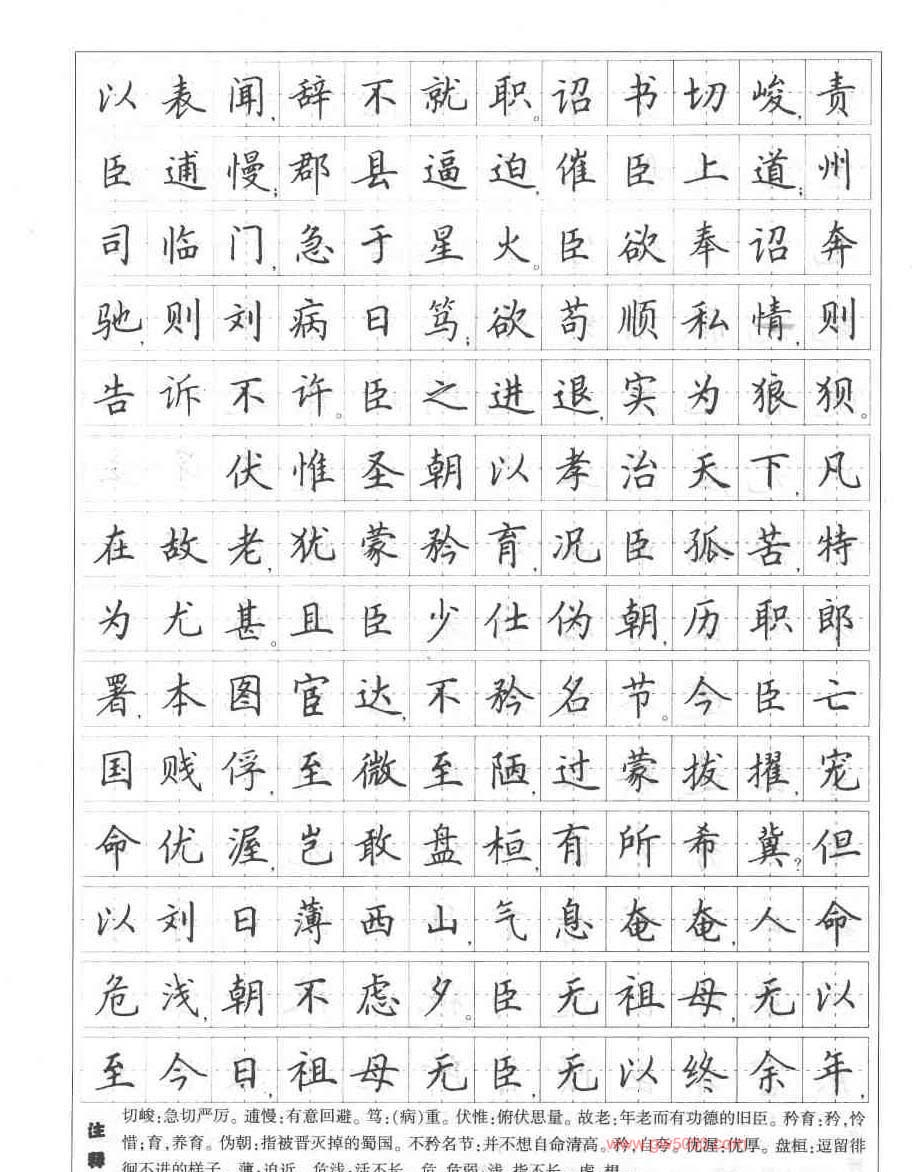 以表闻,辞不就职。诏书切峻,责
臣逋慢;郡县逼迫,催臣上道;州
司临门,急于星火。臣欲奉诏奔
驰,则刘病日笃;欲苟顺私情,则
告诉不许。臣之进退,实为狼狈。
伏惟圣朝以孝治天下,凡
在故老,犹蒙矜育,况臣孤苦,特
为尤甚。且臣少仕伪朝,历职郎
署,本图宦达,不矜名节。今臣亡
国贱俘,至微至陋,过蒙拔擢,宠
命优渥,岂敢盘桓,有所希冀?但
以刘日薄西山,气息奄奄,人命
危浅,朝不虑夕。臣无祖母,无以
至今日,祖母无臣,无以终余年,
注释
切峻:急切严厉。逋慢:有意回避。笃:(病)重。伏惟:俯伏思量。故老:年老而有功德的旧臣。矜育:矜,怜
惜;育,养育。伪朝:指被晋灭掉的蜀国。不矜名节:并不想自命清高。矜,自夸。优渥:优厚。盘桓:逗留徘
徊不进的样子。薄:迫近。危浅:活不长。危,危弱;浅,指不长。虑,想